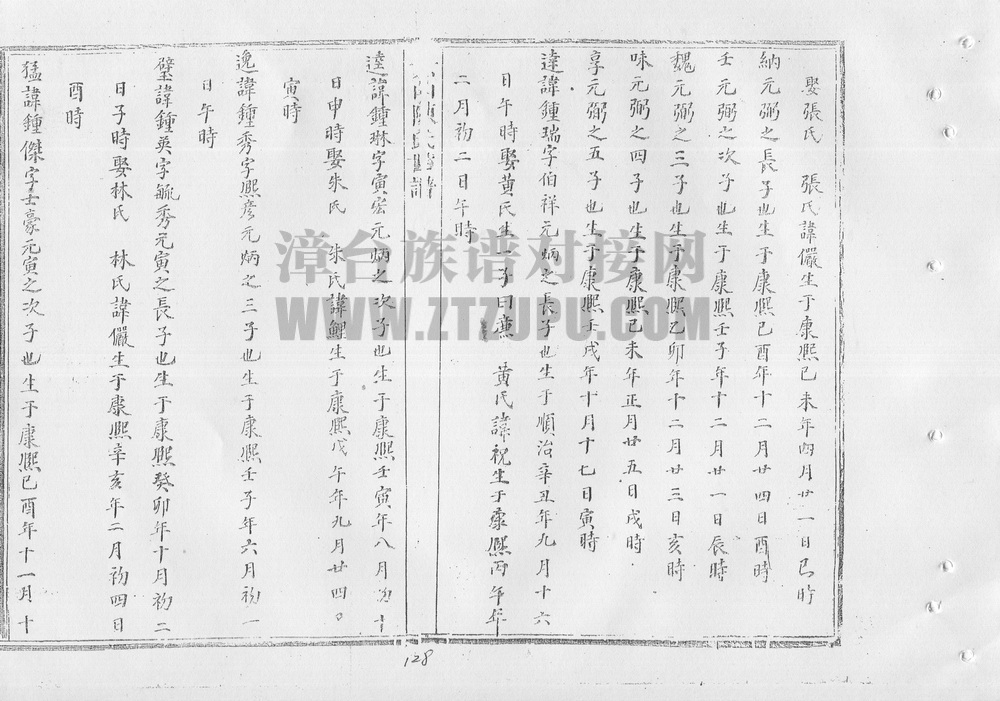 娶張氏 張氏諱儼生于康熙己未年四月廿一日巳時
納元弼之長子也生于康熙己酉年十二月廿四日酉時
壬元弼之次子也生于康熙壬子年十二月廿一日辰時
魏元弼之三子也生于康熙乙卯年十二月廿三日亥時
味元弼之四子也生于康熙己未年正月廿五日戌時
享元弼之五子也生于康熙壬戌年十月十七日寅時
達諱鍾瑞字伯祥元炳之長子也生于順治辛丑年九月十六
日午時娶黄氏生一子曰 黄氏諱祝生于康熙丙午年
二月初二日午時
諱鍾琳字寅宏元炳之次子也生于康熙壬寅年八月初十
日申時娶朱氏 朱氏諱鯉生于康熙戊午年九月廿四日
寅時
逸諱鍾秀字熙彦元炳之三子也生于康熙壬子年六月初一
日午時
璧諱鍾英字毓秀元寅之長子也生于康熙癸卯年十月初二
日子時娶林氏 林氏諱儼生于康熙辛亥年二月初四日
酉時
猛諱鍾傑字士豪元寅之次子也生于康熙己酉年十一月十
漳台族谱对接网
WWW.ZTZUPU.COM
128